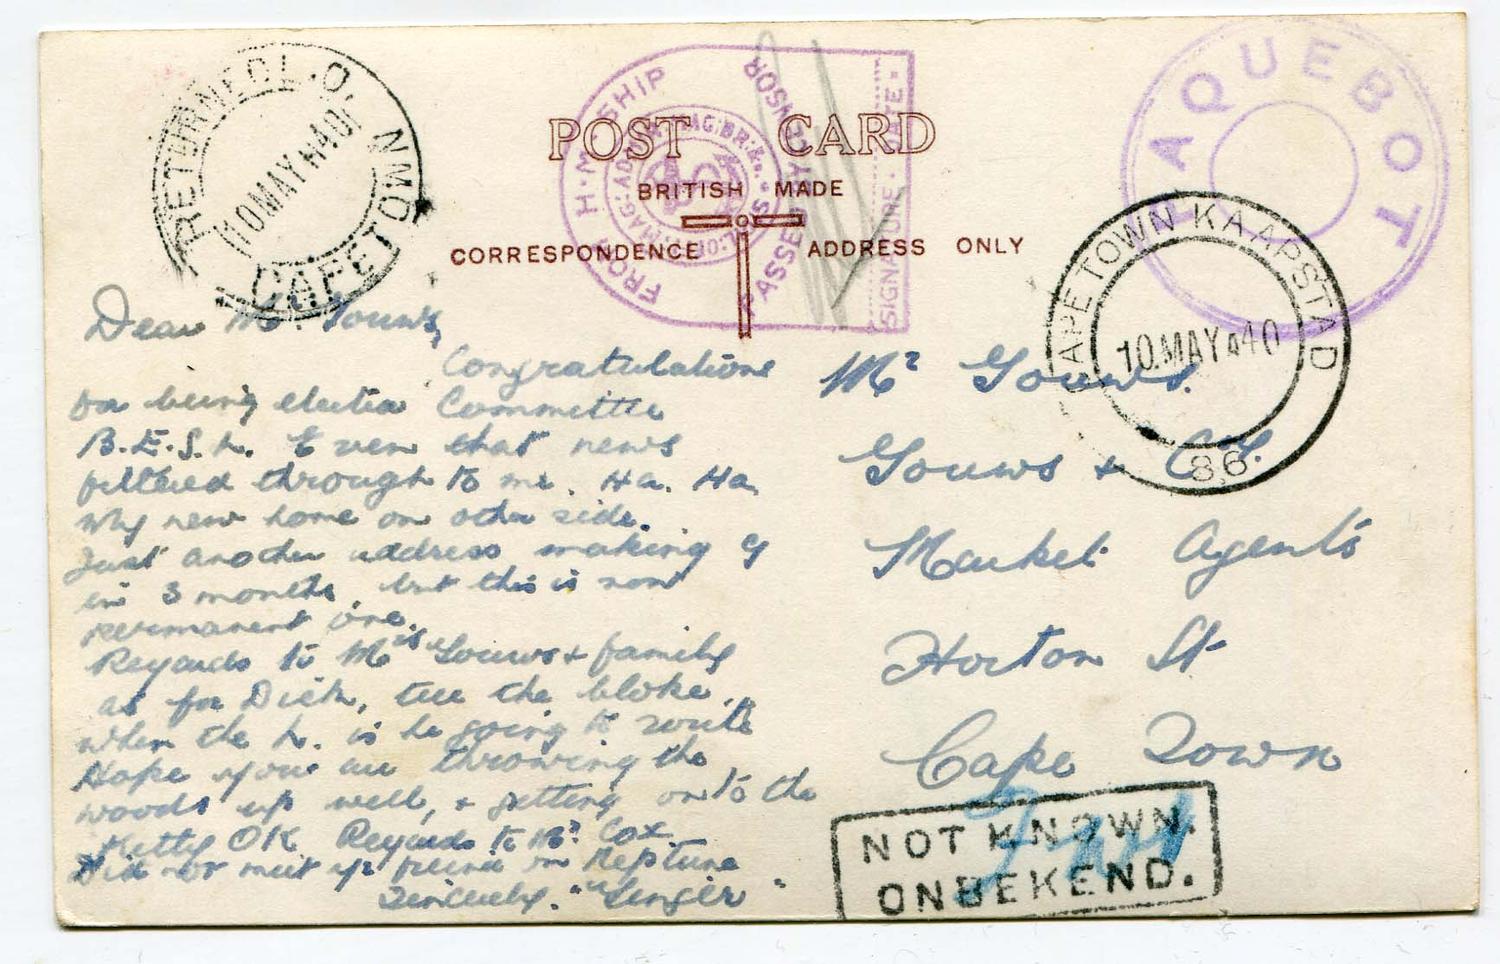 RETURNED L.O.
CAPETOWN
10 MAY 40
FROM H.M. SHIP
PASSED BY CENSOR
SIGNATURE · DATE
PAQUEBOT
POST CARD
BRITISH MADE
CORRESPONDENCE
ADDRESS ONLY
CAPE TOWN KAAPSTAD
10.MAY 40
86
Dear Mr. Gouws,
Congratulations
on being elected Committee
B.E.S.L. Even that news
filtered through to me. Ha. Ha.
My new home on other side.
Just another address making 9
in 3 months, but this is now
permanent one.
Regards to Mrs Gouws & family
as for Dick, tell the bloke,
when the h. is he going to write
Hope you are throwing the
woods up well, & getting onto the
Kitty OK Regards to Mr Cox.
Did not meet yr friend in Neptune
Sincerely. "Ginger"
Mr Gouws.
Gouws & Coy.
Market Agents
Horton St
Cape Town
NOT KNOWN.
ONBEKEND.